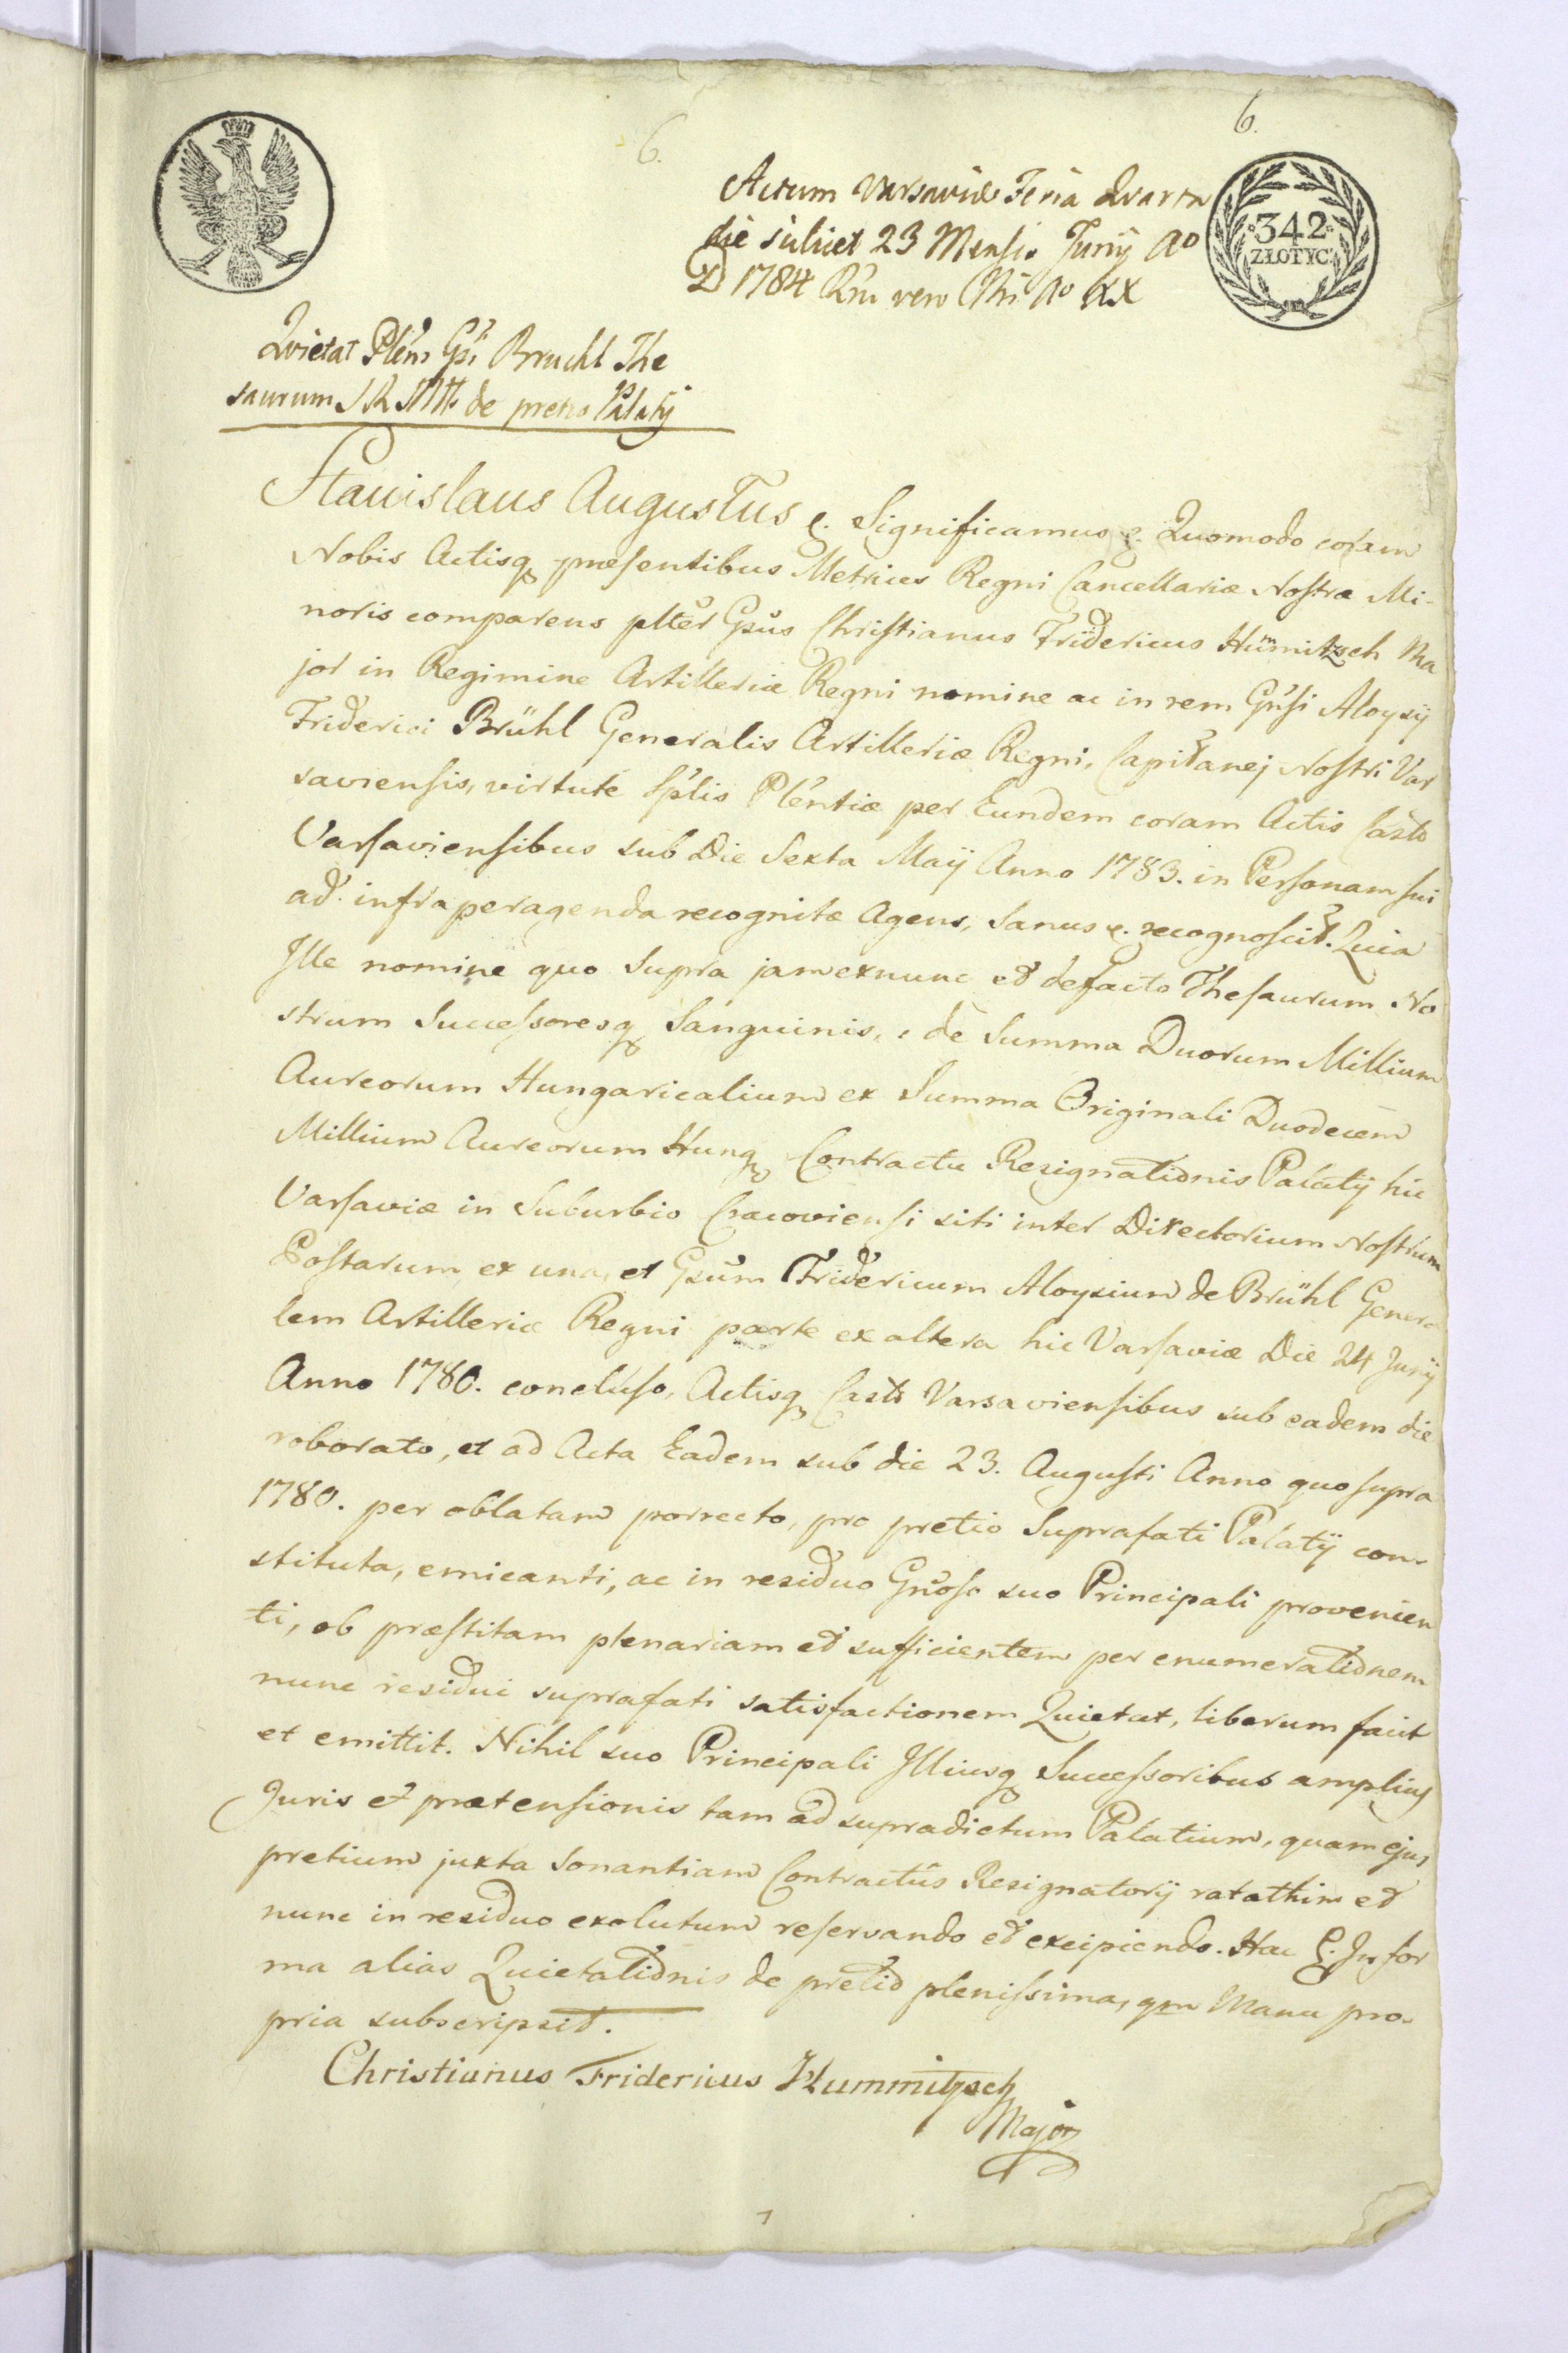 6.
6.
Actum Varsaviæ Feria Quarta
die scilicet 23 Mensis Junij Ao
D 1784 Rni vero Nri Ao XX
342
ZŁOTYC.
Quietat Plen Gsi Bruchl The
saurum de pretio Palatij
Stanislaus Augustus &. Significamus &. Quomodo coram
Nobis Actisq præsentibus Metrices Regni Cancellariæ Nostræ Mi-
noris comparens plter Gsus Christianus Fridericus Hummitzsch Ma
jor in Regimine Artilleriæ Regni nomine ac in rem Gnsi Aloysij
Friderici Brühl Generalis Artilleriæ Regni, Capitanej Nostri Var
saviensis, virtute Splis Plentiæ per Eundem coram Actis Castr
Varsaviensibus sub Die Sexta Maij Anno 1783. in Personam sui
ad infra peragenda recognitæ Agens, Sanus &. recognoscit. Quia
Ille nomine quo supra jam exnunc et defacto Thesaurum No
strum Successoresq Sanguinis, de Summa Duorum Millium
Aureorum Hungaricalium ex Summa Originali Duodecem
Millium Aureorum Hung Contractu Resignationis Palatij hic
Varsaviæ in Suburbio Cracoviensi siti inter Directorium Nostrum
Postarum ex una, et Gsum Fridericum Aloysium de Brühl Genera
lem Artilleriæ Regni parte ex altera hic Varsaviæ Die 24 Junij
Anno 1780. concluso, Actisq Castr Varsaviensibus sub eadem die
roborato, et ad Acta Eadem sub die 23. Augusti Anno quo supra
1780. per oblatam porrecto, pro pretio Suprafati Palatij con-
stituta, emicanti, ac in residuo Gnoso suo Principali provenien
ti, ob præstitam plenariam et sufficientem per enumerationem
nunc residui suprafati satisfactionem Quietat, liberum facit
et emittit. Nihil suo Principali Illiusq Successoribus amplius
Juris et prætensionis tam ad supradictum Palatium, quam ejus
pretium juxta Sonantiam Contractus Resignatorij ratathim et
nunc in residuo exolutum reservando et excipiendo. Hac &. In for
ma alias Quietationis de pretio plenissima, qm Manu pro-
pria subscripsit.
Christianus Fridericus Hummitzsch
Major